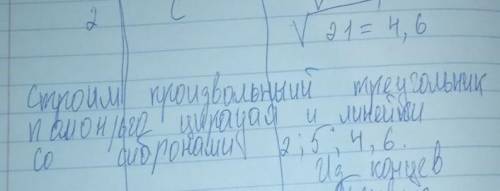 2
√21 = 4,6
строим произвольный треугольник
помощью циркуля и линейки
со сторонами 2; 5; 4,6.
Из концев